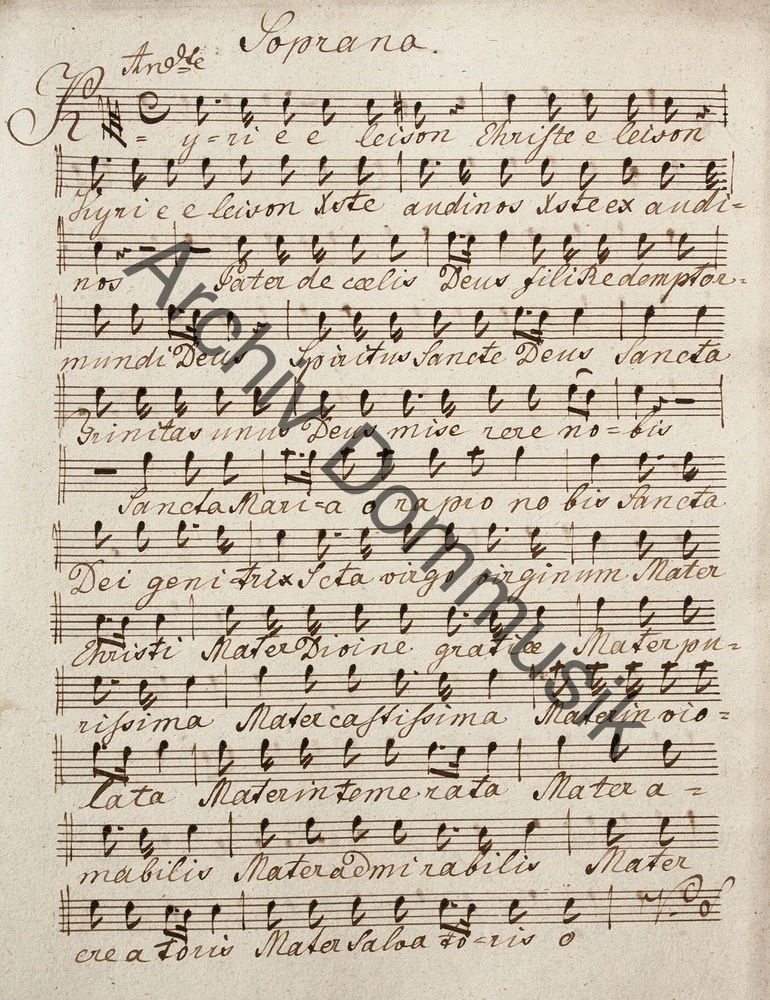 Soprano.
And:te
Ky=ri e e leison Christe e leison
Kyri e e leison Xste audinos Xste ex audi=
nos Pater de cœlis Deus fili Redemptor=
mundi Deus Spiritus Sancte Deus Sancta
Trinitas unus Deus mise rere no=bis
Sancta Mari=a o ra pro no bis Sancta
Dei geni=trix Scta virgo virginum Mater
Christi Mater Divine gratiæ Mater pu=
rissima Mater castissima Mater in vio=
lata Mater inteme rata Mater a=
mabilis Mater admi rabilis Mater
cre a toris Mater Salva to=ris o
Archiv Dommusik